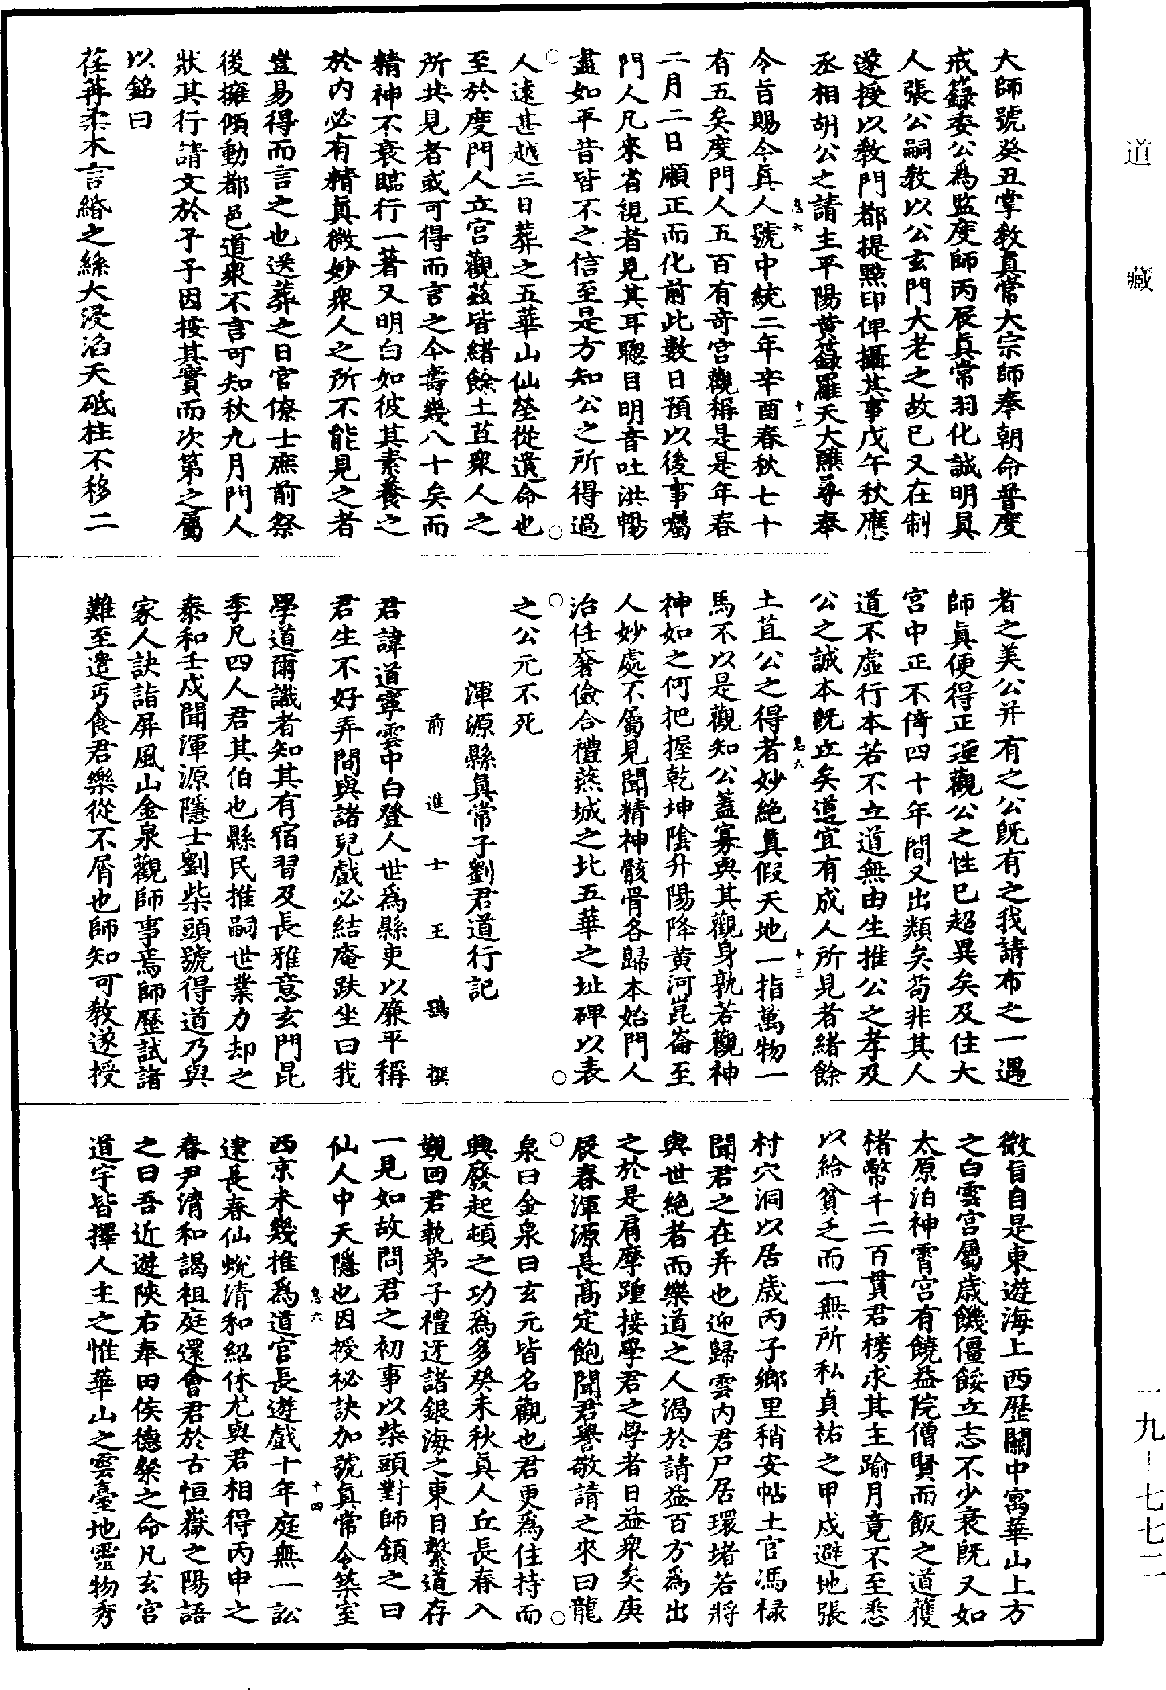 道藏
大師號癸丑掌教真常大宗師奉朝命普度
戒籙委公為監度師丙辰真常羽化誠明真
人張公嗣教以公玄門大老之故已又在制
遂授以教門都提點印俾攝其事戊午秋應
丞相胡公之請主平陽黄籙羅天大醮尋奉
今旨賜今真人號中統二年辛酉春秋七十
有五矣度門人五百有奇宮觀稱是是年春
二月二日順正而化前此數日預以後事囑
門人凡來省視者見其耳聰目明音吐洪暢
盡如平昔皆不之信至是方知公之所得過
人遠甚越三日葬之五華山仙塋從遺命也
至於度門人立宮觀茲皆緒餘土苴衆人之
所共見者或可得而言之今壽幾八十矣而
精神不衰臨行一著又明白如彼其素養之
於内必有精真微妙衆人之所不能見之者
豈易得而言之也送葬之日官僚士庶前祭
後擁傾動都邑道衆不言可知秋九月門人
狀其行請文於予予因按其實而次第之屬
以銘曰
荏苒柔木言緡之絲大浸滔天砥柱不移二
者之美公并有之公既有之我請布之一遇
師真便得正理觀公之性已超異矣及住大
宮中正不倚四十年間又出類矣苟非其人
道不虛行本若不立道無由生推公之孝及
公之誠本既立矣道宜有成人所見者緒餘
土苴公之得者妙絶真假天地一指萬物一
馬不以是觀知公蓋寡與其觀身孰若觀神
神如之何把握乾坤陰升陽降黄河崑崙至
人妙處不屬見聞精神骸骨各歸本始門人
治任奢儉合禮燕城之北五華之址碑以表
之公元不死
渾源縣真常子劉君道行記
前進士王鶚撰
君諱道寧雲中白登人世為縣吏以廉平稱
君生不好弄間與諸兒戲必結庵趺坐曰我
學道爾識者知其有宿習及長雅意玄門昆
季凡四人君其伯也縣民推嗣世業力却之
泰和壬戌聞渾源隱士劉柴頭號得道乃與
家人訣詣屏風山金泉觀師事焉師歷試諸
難至遣丐食君樂從不屑也師知可教遂授
微旨自是東遊海上西歷關中寓華山上方
之白雲宮屬歲饑僵餒立志不少衰既又如
太原泊神霄宮有饒益院僧賢而飯之道獲
楮幣千二百貫君榜求其主踰月竟不至悉
以給貧乏而一無所私貞祐之甲戌避地張
村穴洞以居歲丙子鄉里稍安帖土官馮椂
聞君之在弃也迎歸雲内君尸居環堵若將
與世絶者而樂道之人渴於請益百方為出
之於是肩摩踵接學君之學者日益衆矣庚
辰春渾源長高定飽聞君譽敬請之來曰龍
泉曰金泉曰玄元皆名觀也君更為住持而
興發起頓之功為多癸未秋真人丘長春入
覲回君執弟子禮迓諸銀海之東目繫道存
一見如故問君之初事以柴頭對師頷之曰
仙人中天隱也因授祕訣加號真常令築室
西京未幾推為道官長遊戲十年庭無一訟
逮長春仙蛻清和紹休尤與君相得丙申之
春尹清和謁祖庭還會君於古恒嶽之陽語
之曰吾近遊陝右奉田侯德粲之命凡玄宮
道宇皆擇人主之惟華山之雲臺地靈物秀
一九–七七二